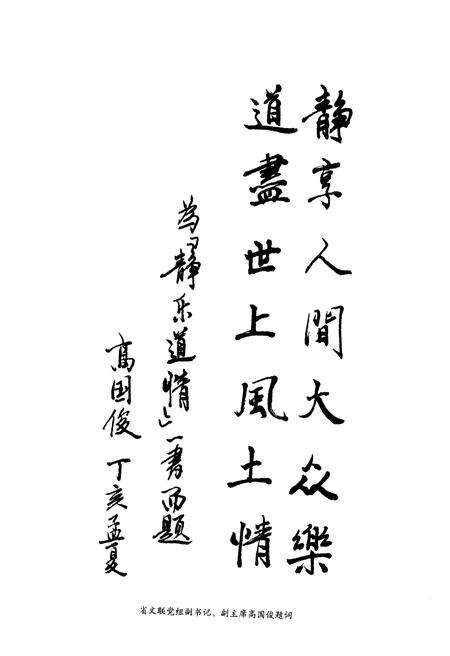 静享人間大众樂
道盡世上風土情
为「静乐道情」一书而题
高国俊 丁亥孟夏
省文联党组副书记、副主席高国俊题词